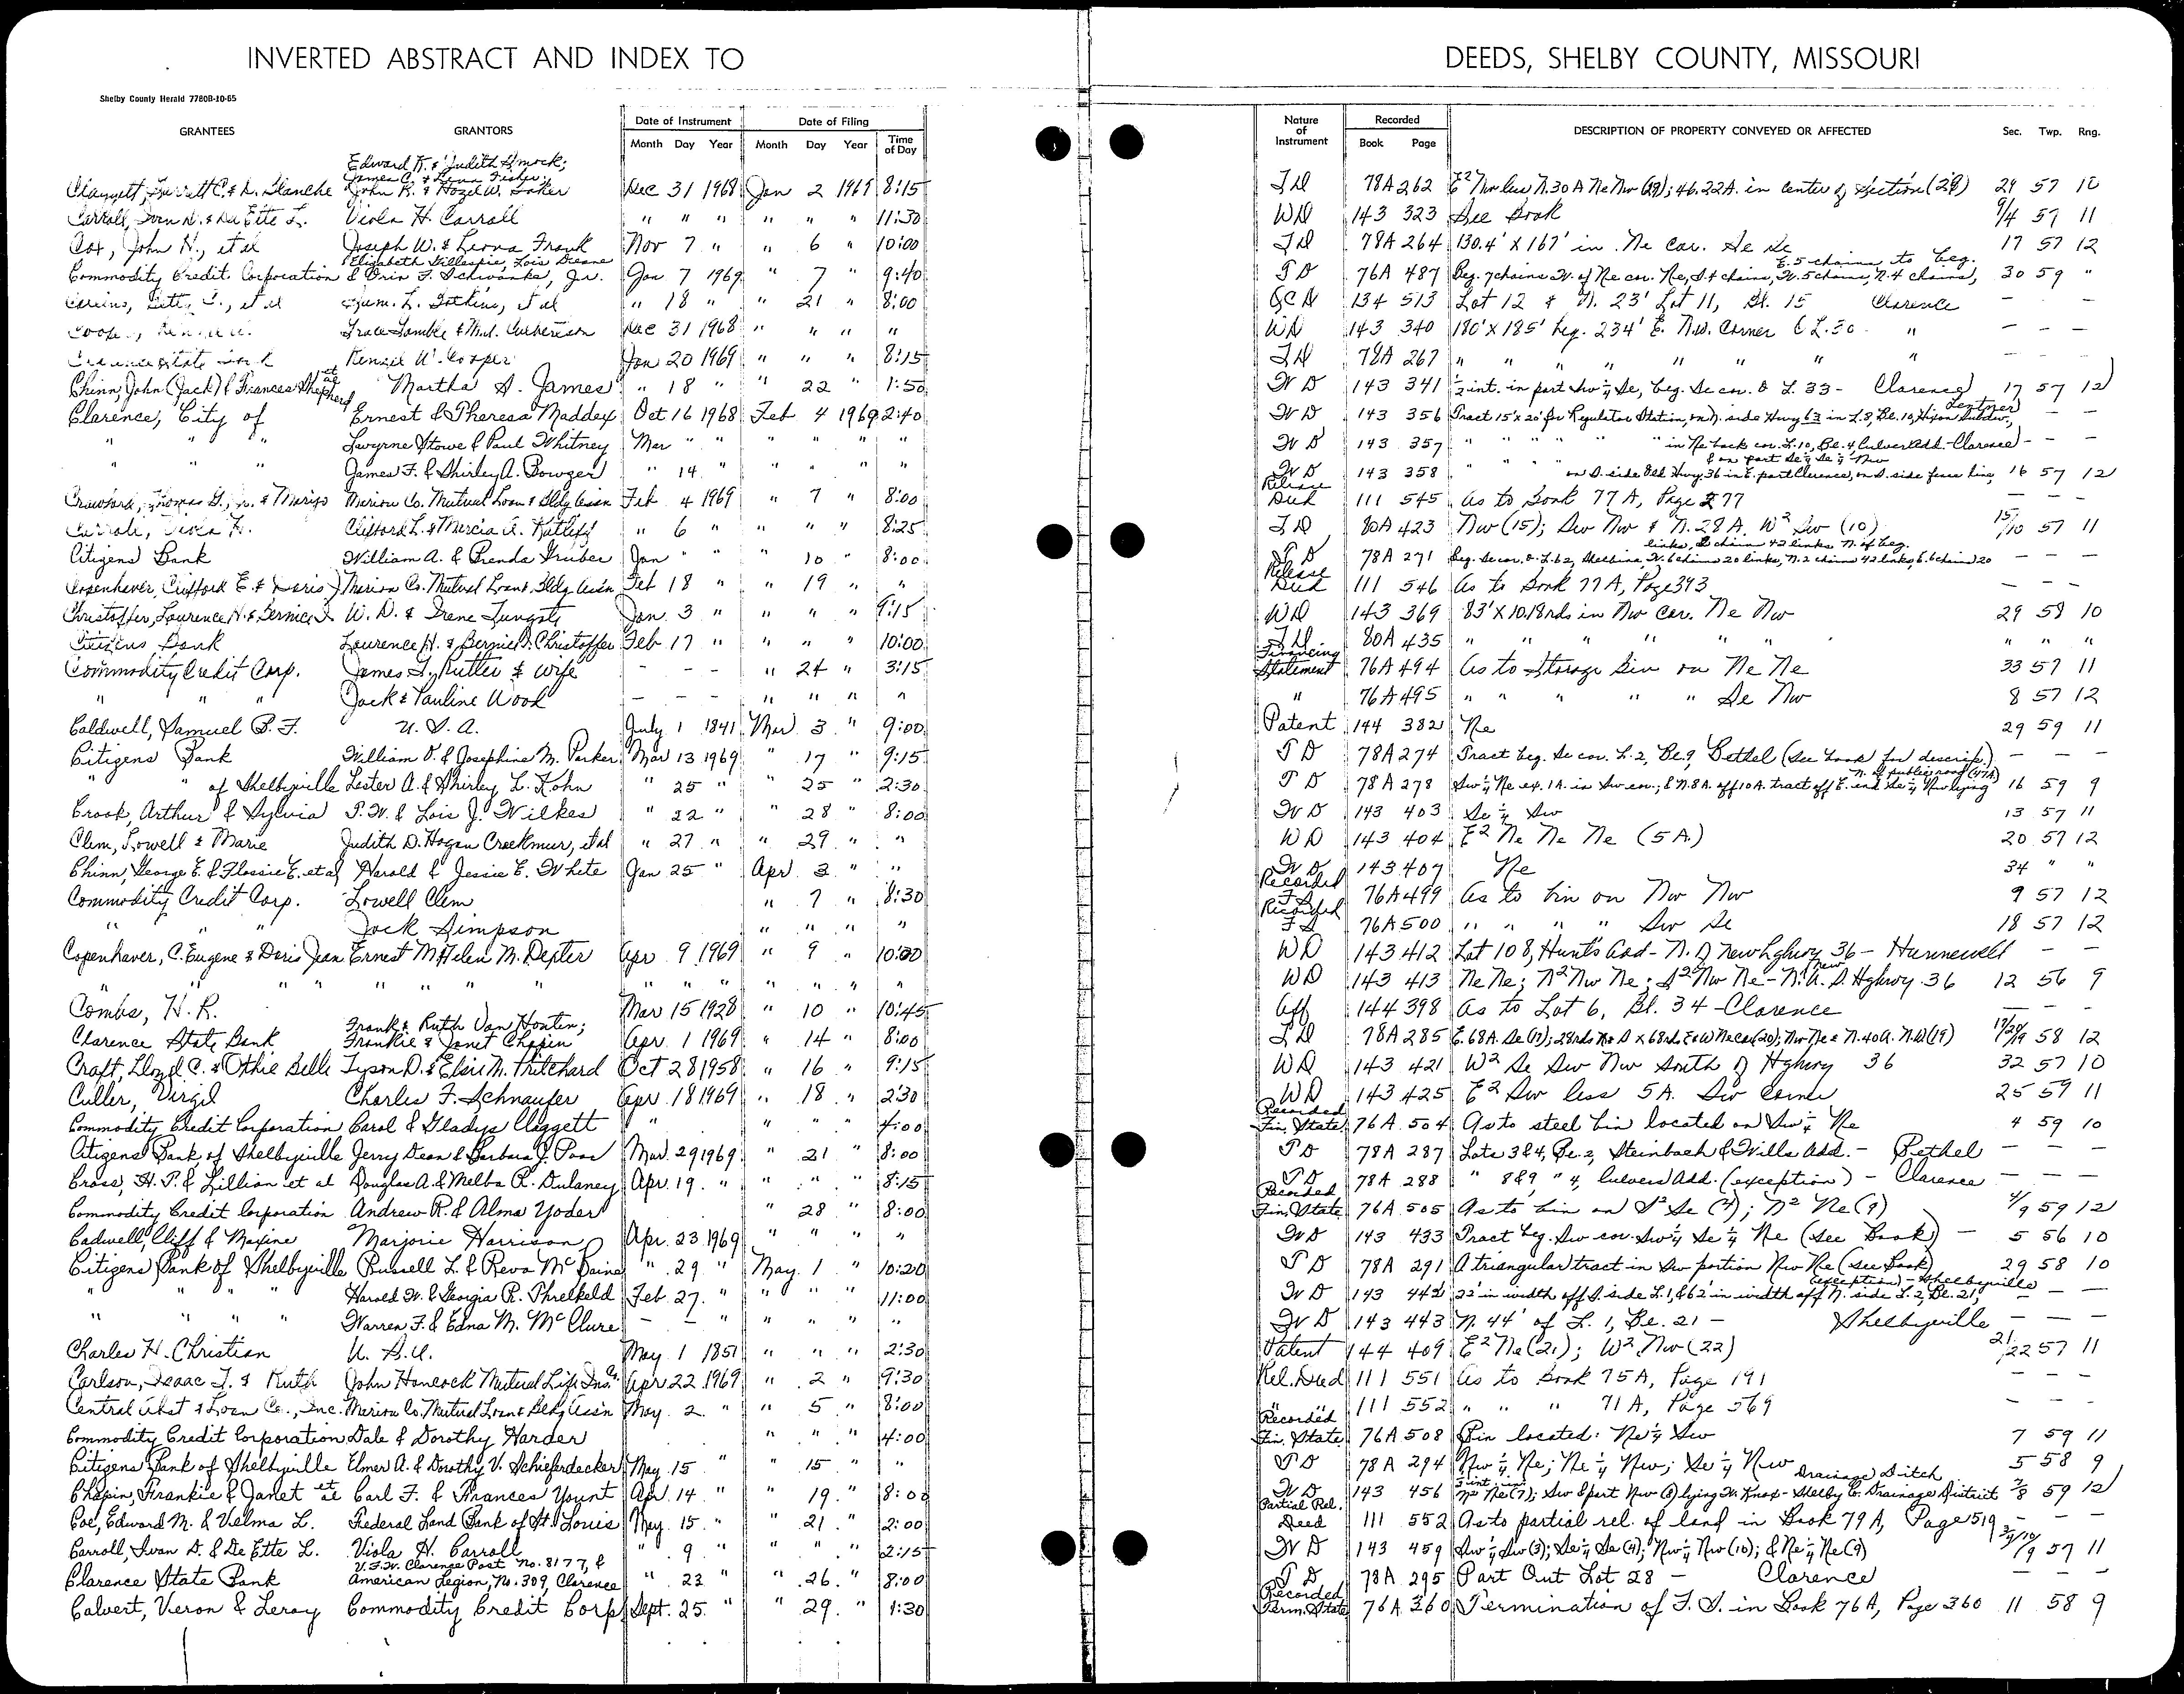 INVERTED ABSTRACT AND INDEX TO
DEEDS, SHELBY COUNTY, MISSOURI
Shelby County Herald 7780B-10-65
GRANTEES GRANTORS Date of Instrument Month Day Year Date of Filing Month Day Year Time of Day Nature of Instrument Recorded Book Page DESCRIPTION OF PROPERTY CONVEYED OR AFFECTED Sec. Twp. Rng.
Edward K. & Judith
James C. & Leona Fisher
Claggett, Garrett C. & L. Blanche John R. & Hazel W. Baker Dec 31 1968 Jan 2 1969 8:15 TD 78A 262 E² Nw less N. 30 A Ne Nw (29); 46.22A. in center of Section (29) 29 57 10
Carroll, Ivan D. & De Ette L. Viola H. Carroll " " " " " " 11:30 WD 143 323 See Book 9/4 57 11
Cox, John H., et al Joseph W. & Leona Frank Nov 7 " " 6 " 10:00 TD 78A 264 130.4' X 167' in Ne cor. Se Se 17 57 12
Elizabeth Gillespie, Lois Deane E. 5 chains to beg.
Commodity Credit Corporation & Orin F. Schwanke, Jr. Jan 7 1969 " 7 " 9:40 TD 76A 487 Beg. 7 chains W. of Ne cor. Ne, S. 4 chains, W. 5 chains, N. 4 chains, 30 59 "
et al et al " 18 " " 21 " 8:00 QCD 134 513 Lot 12 & N. 23' Lot 11, Bl. 15 Clarence - - -
Dec 31 1968 " " " " WD 143 340 180' X 185' beg. 234' E. N.W. Corner O L. 30 " - - -
Clarence State Bank Kenzie W. Cooper Jan 20 1969 " " " 8:15 TD 78A 267 " " " " " " " - - -
Chinn, John (Jack) & Frances Shepherd et al Martha A. James " 18 " " 22 " 1:50 WD 143 341 ½ int. in part Sw ¼ Se, beg. Se cor. O L. 33 - Clarence) 17 57 12)
Clarence, City of Ernest & Theresa Maddex Oct 16 1968 Feb 4 1969 2:40 WD 143 356 Tract 15 x 20' for Regulator Station, on N. side Hwy 63 in L. 8, Bl. 10, Hixon Subdiv., Lentner) - -
" " " Lwyrne Stowe & Paul Whitney Mar " " " " " " WD 143 357 " " " " " in Ne back cor. L. 10, Bl. 4 Culver Add.-Clarence) - - -
& on part Se ¼ Se ¼ Nw
" " " James F. & Shirley A. Bowzer " 14 " " " " " WD 143 358 " " " on S. side Old Hwy. 36 in E. part Clarence, on S. side fence line, 16 57 12
Crawford, Thomas G., Jr. & Margo Marion Co. Mutual Loan & Bldg Assn Feb 4 1969 " 7 " 8:00 Release Deed 111 545 As to Book 77 A, Page 277 - - -
Carroll, Viola H. Clifford L. & Mercia A. Ratliff " 6 " " " " 8:25 TD 80A 423 Nw (15); Sw Nw & N. 28 A. W² Sw (10) 15/10 57 11
links, 2 chain 42 links N. of beg.
Citizens Bank William A. & Brenda Gruber Jan " " " 10 " 8:00 TD 78A 271 Beg. Se cor. O. L. 62, Shelbina, W. 6 chains 20 links, N. 2 chains 42 links, E. 6 chains 20 - - -
Copenhaver, Clifford E. & Doris J Marion Co. Mutual Loan & Bldg Assn Feb 18 " " 19 " " Release Deed 111 546 As to Book 77 A, Page 393 - - -
Christoffer, Laurence H. & Bernice I. W. D. & Irene Jan. 3 " " " " 9:15 WD 143 369 83' X 10.18 rds in Nw cor. Ne Nw 29 58 10
Citizens Bank Laurence H. & Bernice I. Christoffer Feb 17 " " " " 10:00 TD 80A 435 " " " " " " " " "
Commodity Credit Corp. James T. Rutter & Wife - - - " 24 " 3:15 Financing Statement 76A 494 As to Storage Bin on Ne Ne 33 57 11
" " " Jack & Pauline Wood - - - " " " " " 76A 495 " " " " " Se Nw 8 57 12
Caldwell, Samuel B. F. U. S. A. July 1 1841 Mar 3 " 9:00 Patent 144 382 Ne 29 59 11
Citizens Bank William O. & Josephine M. Parker Mar 13 1969 " 17 " 9:15 TD 78A 274 Tract beg. Se cor. L. 2, Bl. 9, Bethel (see book for descrip.) - - -
N. of public road (47A)
" " of Shelbyville Lester A. & Shirley L. Kohn " 25 " " 25 " 2:30 TD 78A 278 Sw ¼ Ne ex. 1A. in Sw cor., & N. 8 A. off 10 A. tract off E. end Se ¼ Nw lying 16 59 9
Crook, Arthur & Sylvia T. W. & Lois J. Wilkes " 22 " " 28 " 8:00 WD 143 403 Se ¼ Sw 13 57 11
Clem, Lowell & Marie Judith D. Hogan Creekmur, et al " 27 " " 29 " " WD 143 404 E² Ne Ne Ne (5 A.) 20 57 12
Chinn, George E. & Flossie E. et al Harold & Jessie E. White Jan 25 " Apr 3 " " WD 143 407 Ne 34 " "
Commodity Credit Corp. Lowell Clem " 7 " 8:30 Recorded F S 76A 499 As to bin on Nw Nw 9 57 12
" " " Jack Simpson " " " " Recorded F S 76A 500 " " " " Sw Se 18 57 12
Copenhaver, C. Eugene & Doris Jean Ernest M. Helen M. Dexter Apr 9 1969 " 9 " 10:00 WD 143 412 Lot 108, Hunt's Add - N. of New Hghwy 36 - Hunnewell - -
" " " " " " " " " " " " " " WD 143 413 Ne Ne; N² Nw Ne; S² Nw Ne - N. U. S. New Hghwy 36 12 56 9
Combs, H. R. Mar 15 1928 " 10 " 10:45 Aff 144 398 As to Lot 6, Bl. 34 - Clarence - - -
Frank & Ruth Van Houten;
Clarence State Bank Frankie & Janet Chapin Apr. 1 1969 " 14 " 8:00 TD 78A 285 E. 68 A. Se (17); 28 rds N & S x 68 rds E & W Ne cor (20); Nw Ne & N. 40 A. N.W. (19) 17/20/19 58 12
Craft, Lloyd C. & Othie Belle Tyson D. & Elsie M. Pritchard Oct 28 1958 " 16 " 9:15 WD 143 421 W² Se Sw Nw South of Hghwy 36 32 57 10
Culler, Virgil Charles F. Schnaufer Apr 18 1969 " 18 " 2:30 WD 143 425 E² Sw less 5 A. Sw Corner 25 59 11
Commodity Credit Corporation Carol & Gladys Claggett " " " " 4:00 Recorded Fin. State. 76A 504 As to steel bin located on Sw ¼ Ne 4 59 10
Citizens Bank of Shelbyville Jerry Dean & Barbara J. Poor Mar. 29 1969 " 21 " 8:00 TD 78A 287 Lots 3 & 4, Bl. 2, Steinbach & Wills Add. - Bethel - - -
Cross, H. P. & Lillian et al Douglas A. & Melba R. Dulaney Apr. 19. " " " " 8:15 TD 78A 288 " 8 & 9 " 4, Culvers Add. (exception) - Clarence - - -
Commodity Credit Corporation Andrew R. & Alma Yoder " 28 " 8:00 Recorded Fin. State. 76A 505 As to bin on S² Se (4); N² Ne (9) 4/9 59 12
Cadwell, Cliff & Maxine Marjorie Harrison Apr. 23 1969 " " " " WD 143 433 Tract beg. Sw cor. Sw ¼ Se ¼ Ne (see Book) - 5 56 10
Citizens Bank of Shelbyville Russell L. & Reva McDaniel " 29 " May 1 " 10:20 TD 78A 291 A triangular tract in Sw portion Nw Ne (see Book) 29 58 10
(exception) - Shelbyville
" " " " Harold W. & Georgia R. Threlkeld Feb. 27. " " " " 11:00 WD 143 442 22' in width off S. side L. 1, & 62' in width off N. side L. 2, Bl. 21, - - -
" " " " Warren F. & Edna M. McClure - - " " " " " WD 143 443 N. 44' of L. 1, Bl. 21 - Shelbyville - - -
Charles H. Christian U. S. A. May 1 1851 " " " 2:30 Patent 144 409 E² Ne (21); W² Nw (22) 21/22 57 11
Carlson, Isaac T. & Ruth John Hancock Mutual Life Ins. Co. Apr 22 1969 " 2 " 9:30 Rel. Deed 111 551 As to Book 75A, Page 191 - - -
Central Abst & Loan Co., Inc. Marion Co. Mutual Loan & Bldg Ass'n May 2 " " 5 " 8:00 " " 111 552 " " " 71 A, Page 569 - - -
Commodity Credit Corporation Dale & Dorothy Harder " " " 4:00 Recorded Fin. State. 76A 508 Bin located: Ne ¼ Sw 7 59 11
Citizens Bank of Shelbyville Elmer A. & Dorothy V. Schieferdecker May 15 " " 15 " " TD 78A 294 Nw ¼ Ne; Ne ¼ Nw; Se ¼ Nw 5 58 9
Drainage Ditch
Chapin, Frankie & Janet et al Carl F. & Frances Yount Apr. 14 " " 19. " 8:00 WD 143 456 Ne (7); Sw & part Nw (8) lying W. Knox-Shelby Co. Drainage District 7/8 59 12)
Coe, Edward M. & Velma L. Federal Land Bank of St. Louis May. 15. " " 21. " 2:00 Partial Rel. Deed 111 552 As to partial rel. of land in Book 79 A, Page 519 - - -
Carroll, Ivan D. & De Ette L. Viola H. Carroll " 9 " " " " 2:15 WD 143 459 Sw ¼ Sw (3); Se ¼ Se (4); Nw ¼ Nw (10); & Ne ¼ Ne (9) 3/4/10/9 57 11
V.F.W. Clarence Post No. 8177, &
Clarence State Bank American Legion, No. 309, Clarence " 23 " " 26. " 8:00 TD 78A 295 Part Out Lot 28 - Clarence - - -
Calvert, Veron & Leroy Commodity Credit Corp Sept. 25. " " 29. " 1:30 Recorded Term. State. 76A 360 Termination of F. S. in Book 76 A, Page 360 11 58 9